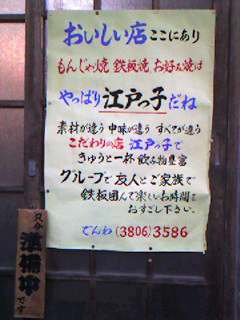 おいしい店 ここにあり
もんじゃ焼 鉄板焼 お好み焼は
やっぱり 江戸っ子 だね
素材が違う 中味が違う すべてが違う
こだわりの店 江戸っ子で
きゅうと一杯 飲み物豊富
グループで 友人と ご家族で
鉄板囲んで楽しいお時間を
おすごし下さい。
でんわ (3806) 3586
只今
準備中
です